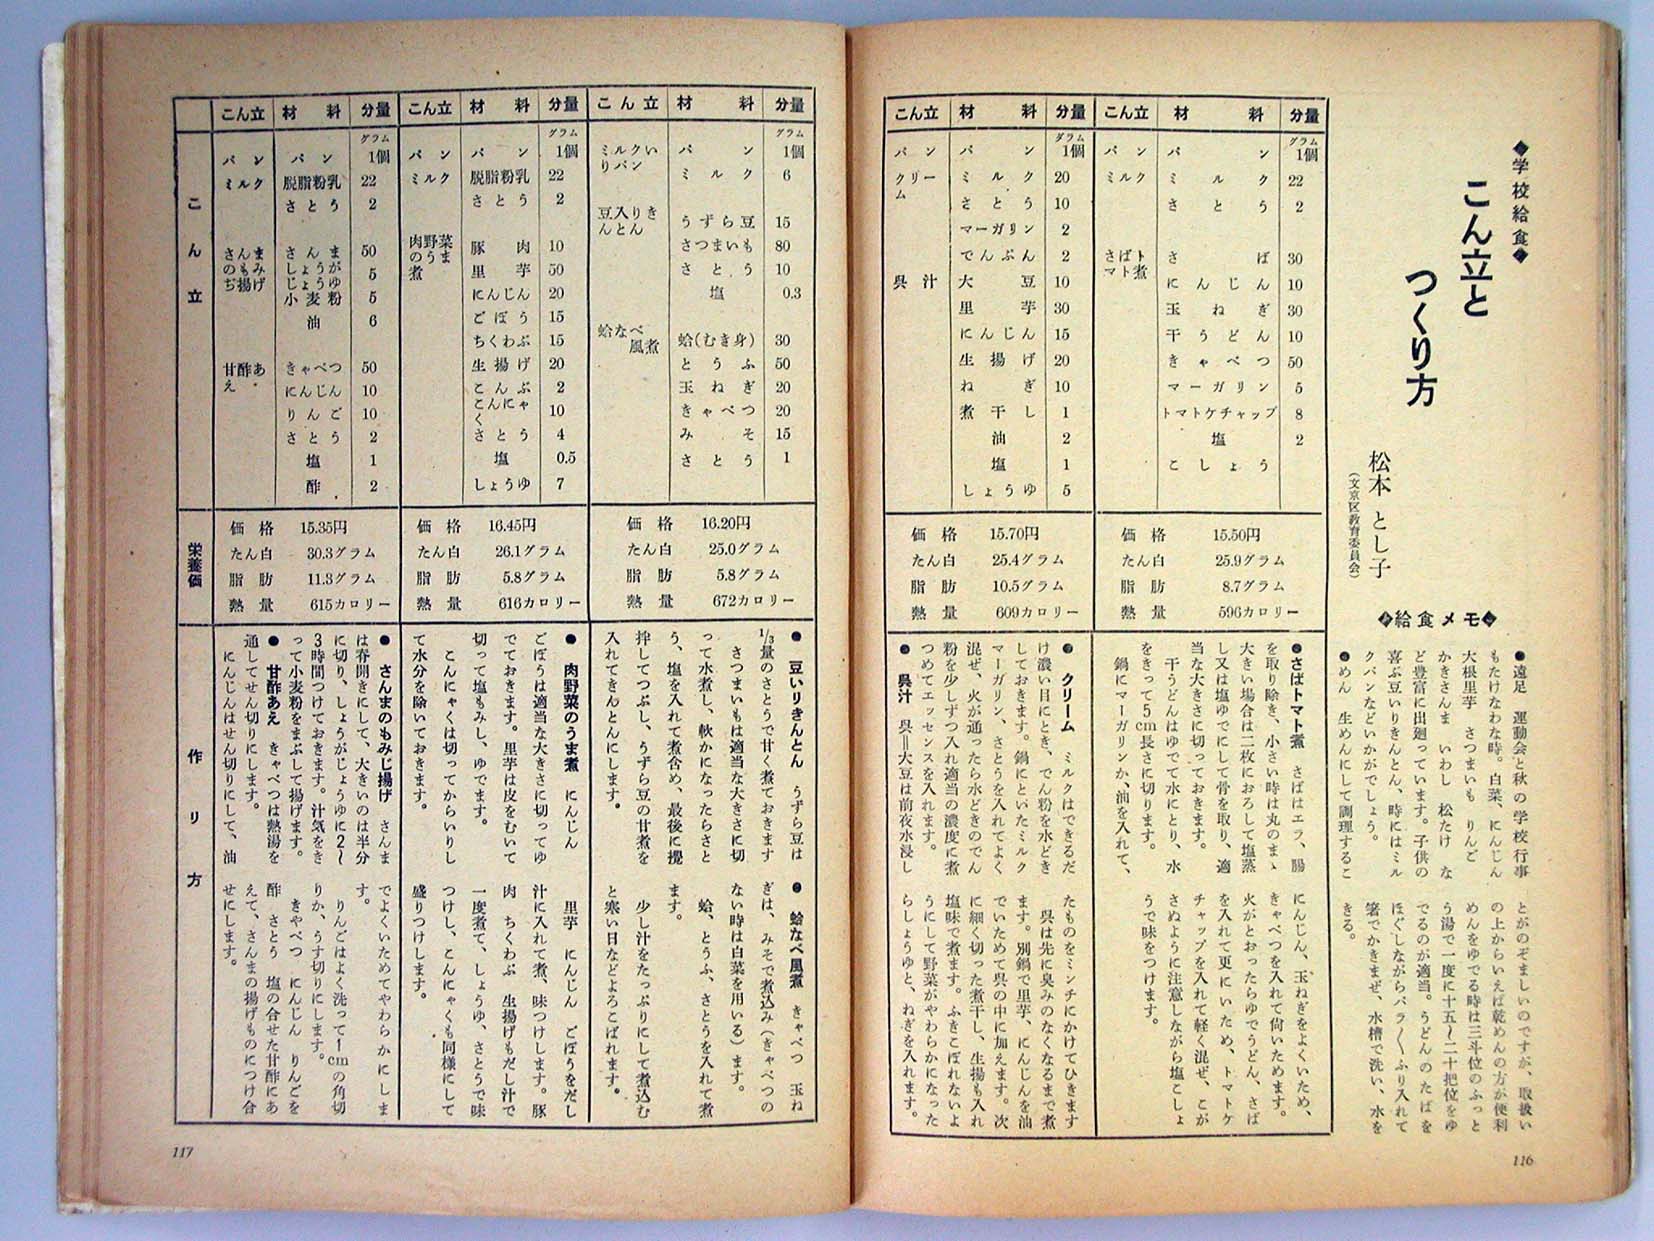 ◆学校給食◆
こん立と
つくり方
松本とし子
(文京区教育委員会)
◆給食メモ◆
●遠足　運動会と秋の学校行事
もたけなわな時。白菜、にんじん
大根里芋　さつまいも　りんご
かきさんま　いわし　松たけ　な
ど豊富に出廻っています。子供の
喜ぶ豆いりきんとん、時にはミル
クパンなどいかがでしょう。
●めん　生めんにして調理するこ
とがのぞましいのですが、取扱い
の上からいえば乾めんの方が便利
めんをゆでる時は三斗位のふっと
う湯で一度に十五〜二十把位をゆ
でるのが適当。うどんのたばを
ほぐしながらバラ〱ふり入れて
箸でかきまぜ、水槽で洗い、水を
きる。
こん立　材料　分量
グラム
パン　パン　1個
ミルク　ミルク　22
さとう　2
さばトマト煮　さば　30
にんじん　10
玉ねぎ　30
干うどん　10
きゃべつ　50
マーガリン　5
トマトケチャップ　8
塩　2
こしょう
価格　15.50円
たん白　25.9グラム
脂肪　8.7グラム
熱量　596カロリー
●さばトマト煮　さばはエラ、腸
を取り除き、小さい時は丸のまゝ
大きい場合は二枚におろして塩蒸
し又は塩ゆでにして骨を取り、適
当な大きさに切っておきます。
干うどんはゆでて水にとり、水
をきって5cm長さに切ります。
鍋にマーガリンか、油を入れて、
にんじん、玉ねぎをよくいため、
きゃべつを入れて尚いためます。
火がとおったらゆでうどん、さば
を入れて更にいため、トマトケ
チャップを入れて軽く混ぜ、こが
さぬように注意しながら塩こしょ
うで味をつけます。
こん立　材料　分量
グラム
パン　パン　1個
クリーム　ミルク　20
さとう　10
マーガリン　2
でんぷん　2
呉汁　大豆　10
里芋　30
にんじん　15
生揚げ　20
ねぎ　10
煮干し　1
油　2
塩　1
しょうゆ　5
価格　15.70円
たん白　25.4グラム
脂肪　10.5グラム
熱量　609カロリー
●クリーム　ミルクはできるだ
け濃い目にとき、でん粉を水どき
しておきます。鍋にといたミルク
マーガリン、さとうを入れてよく
混ぜ、火が通ったら水どきのでん
粉を少しずつ入れ適当の濃度に煮
つめてエッセンスを入れます。
●呉汁　呉＝大豆は前夜水浸し
たものをミンチにかけてひきます
呉は先に臭みのなくなるまで煮
ます。別鍋で里芋、にんじんを油
でいためて呉の中に加えます。次
に細く切った煮干し、生揚も入れ
塩味で煮ます。ふきこぼれないよ
うにして野菜がやわらかになった
らしょうゆと、ねぎを入れます。
116
こん立　材料　分量
グラム
ミルクいりパン　パン　1個
ミルク　6
豆入りきんとん　うずら豆　15
さつまいも　80
さとう　10
塩　0.3
蛤なべ風煮　蛤(むき身)　30
とうふ　50
玉ねぎ　20
きゃべつ　20
みそ　15
さとう　1
価格　16.20円
たん白　25.0グラム
脂肪　5.8グラム
熱量　672カロリー
●豆いりきんとん　うずら豆は
1/3量のさとうで甘く煮ておきます
さつまいもは適当な大きさに切
って水煮し、軟かになったらさと
う、塩を入れて煮含め、最後に攪
拌してつぶし、うずら豆の甘煮を
入れてきんとんにします。
●蛤なべ風煮　きゃべつ　玉ね
ぎは、みそで煮込み(きゃべつの
ない時は白菜を用いる)ます。
蛤、とうふ、さとうを入れて煮
ます。
少し汁をたっぷりにして煮込む
と寒い日などよろこばれます。
こん立　材料　分量
グラム
パン　パン　1個
ミルク　脱脂粉乳　22
さとう　2
肉野菜のうま煮　豚肉　10
里芋　50
にんじん　20
ごぼう　15
ちくわぶ　15
生揚げ　20
こんぶ　2
こんにゃく　10
さとう　4
塩　0.5
しょうゆ　7
価格　16.45円
たん白　26.1グラム
脂肪　5.8グラム
熱量　616カロリー
●肉野菜のうま煮　にんじん
ごぼうは適当な大きさに切ってゆ
でておきます。里芋は皮をむいて
切って塩もみし、ゆでます。
こんにゃくは切ってからいりし
て水分を除いておきます。
里芋　にんじん　ごぼうをだし
汁に入れて煮、味つけします。豚
肉　ちくわぶ　生揚げもだし汁で
一度煮て、しょうゆ、さとうで味
つけし、こんにゃくも同様にして
盛りつけします。
こん立　材料　分量
こん立
グラム
パン　パン　1個
ミルク　脱脂粉乳　22
さとう　2
さんまのもみじ揚げ　さんま　50
しょうがじょうゆ　5
小麦粉　5
油　6
甘酢あえ　きゃべつ　50
にんじん　10
りんご　10
さとう　2
塩　1
酢　2
栄養価
価格　15.35円
たん白　30.3グラム
脂肪　11.3グラム
熱量　615カロリー
作り方
●さんまのもみじ揚げ　さんま
は春開きにして、大きいのは半分
に切り、しょうがじょうゆに2〜
3時間つけておきます。汁気をき
って小麦粉をまぶして揚げます。
●甘酢あえ　きゃべつは熱湯を
通してせん切りにします。
にんじんはせん切りにして、油
でよくいためてやわらかにしま
す。
りんごはよく洗って1cmの角切
りか、うす切りにします。
きゃべつ　にんじん　りんごを
酢　さとう　塩の合せた甘酢にあ
えて、さんまの揚げものにつけ合
せにします。
117